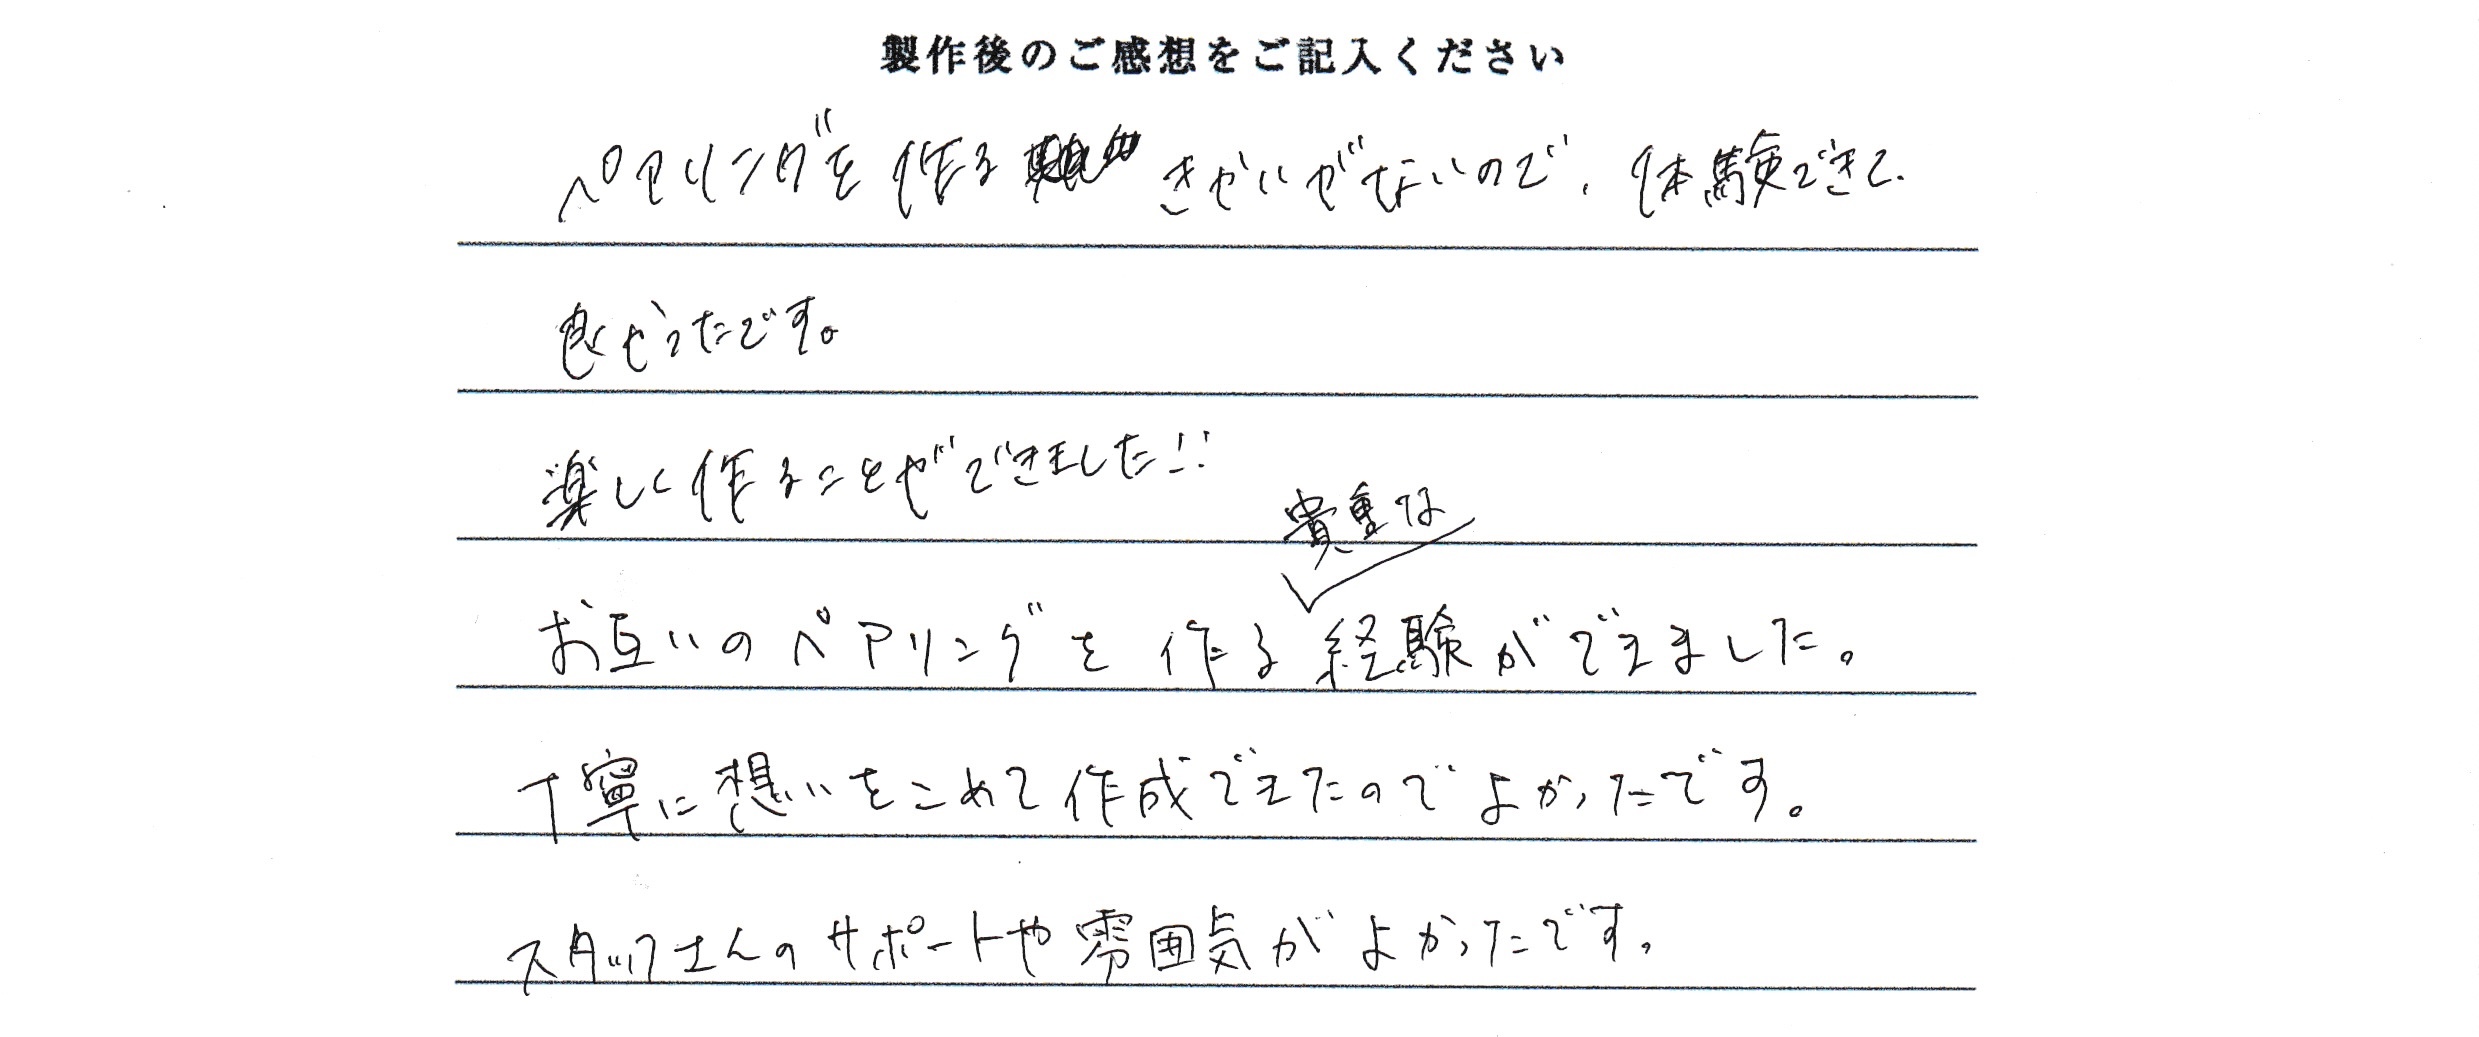 製作後のご感想をご記入ください
ペアリングを作る きかいがないので、体験できて
良かったです。
楽しく作ることができました!!
貴重な
お互いのペアリングを作る経験ができました。
丁寧に想いをこめて作成できたのでよかったです。
スタッフさんのサポートや雰囲気がよかったです。